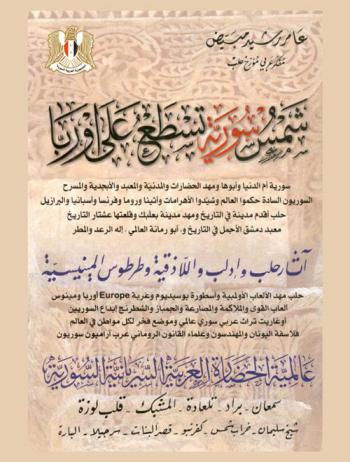 عامر رشيد مبيض
مفكر عربي مؤرخ حلب
شمس سورية تسطع على اوربا
سورية أم الدنيا وأبوها ومهد الحضارات والمدنية والمعبد والأبجدية والمسرح
السوريون السادة حكموا العالم وشيدوا الأهرامات وأثينا وروما وفرنسا وأسبانيا والبرازيل
حلب أقدم مدينة في التاريخ ومهد مدينة بعلبك وقلعتها عشتار التاريخ
معبد دمشق الأجمل في التاريخ و. أبو رمانة العالي. إله الرعد والمطر
آثار حلب وإدلب واللاذقية وطرطوس المنيسية
حلب مهد الألعاب الأولمبية وأسطورة بوسيديوم وعربة Europe أوربا ومينوس
ألعاب القوى والملاكمة والمصارعة والجمباز والشطرنج إبداع السوريين
أوغاريت تراث عربي سوري عالمي وموضع فخر لكل مواطن في العالم
فلاسفة اليونان والمهندسون وعلماء القانون الروماني عرب آراميون سوريون
عالمية الحضارة العربية السريانية السورية
سمعان . براد . تلعادة . المشبك . قلب لوزة
شيخ سليمان . خراب شمس . كفرنبو . قصر البنات . سرجيلا . البارة